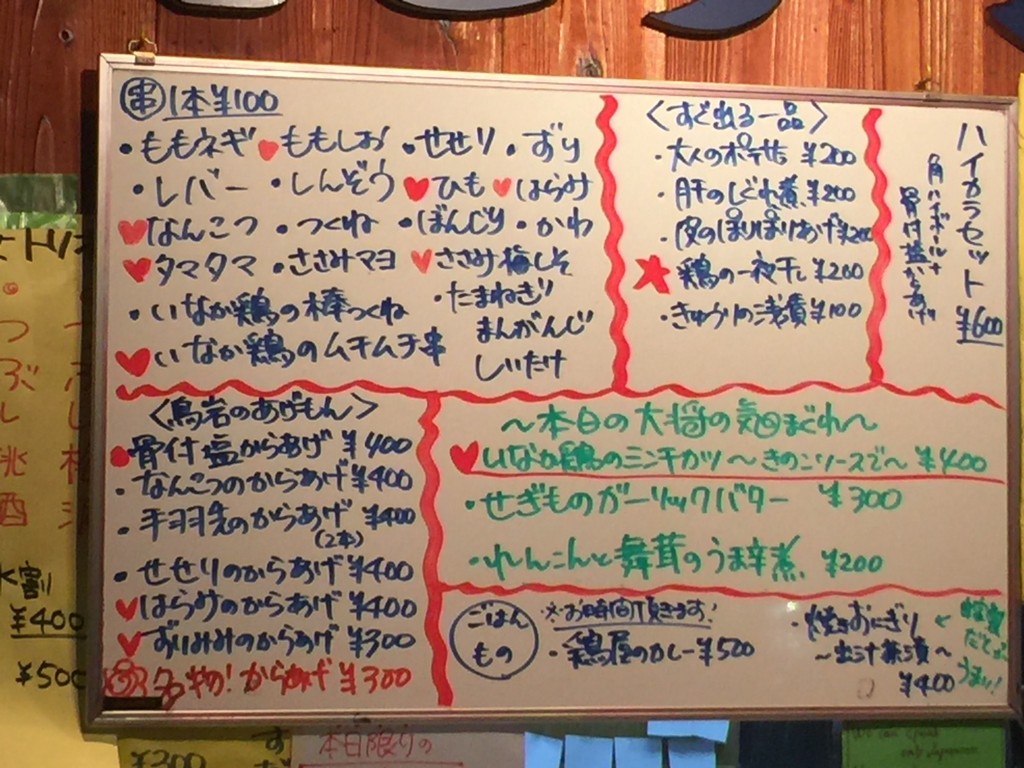 串 1本¥100
・ももネギ ♥ももしお ・せせり ・ずり
・レバー ・しんぞう ♥ひも ♥はらみ
♥なんこつ ・つくね ・ぼんじり ・かわ
♥タマタマ ・ささみマヨ ♥ささみ梅しそ
・いなか鶏の棒つくね
♥いなか鶏のムチムチ串
・たまねぎ
まんがんじ
しいたけ
〈すぐ出る一品〉
・大人のポテサ ¥200
・肝のしぐれ煮 ¥200
・皮のぽりぽりあげ ¥200
★鶏の一夜干し ¥200
・きゅうりの浅漬 ¥100
ハイカラセット ¥600
角ハイボール+
骨付塩からあげ
〈鳥岩のあげもん〉
●骨付塩からあげ ¥400
・なんこつのからあげ ¥400
・手羽先のからあげ ¥400
(2本)
・せせりのからあげ ¥400
♥はらみのからあげ ¥400
♥ずりみみのからあげ ¥300
名物!からあげ ¥300
〜本日の大将の気まぐれ〜
♥いなか鶏のミンチカツ〜きのこソースで〜 ¥400
・せぎものガーリックバター ¥300
・れんこんと舞茸のうま辛煮 ¥200
ごはんもの
※お時間頂きます!
・鶏屋のカレー ¥500
・焼きおにぎり
〜出汁茶漬〜
¥400
うまい!
割
¥400
¥500
¥300
本日限りの